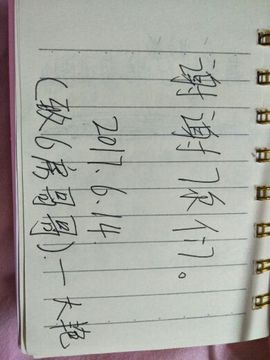 谢谢你们。
2017.6.14
(致6房哥哥).一大艳